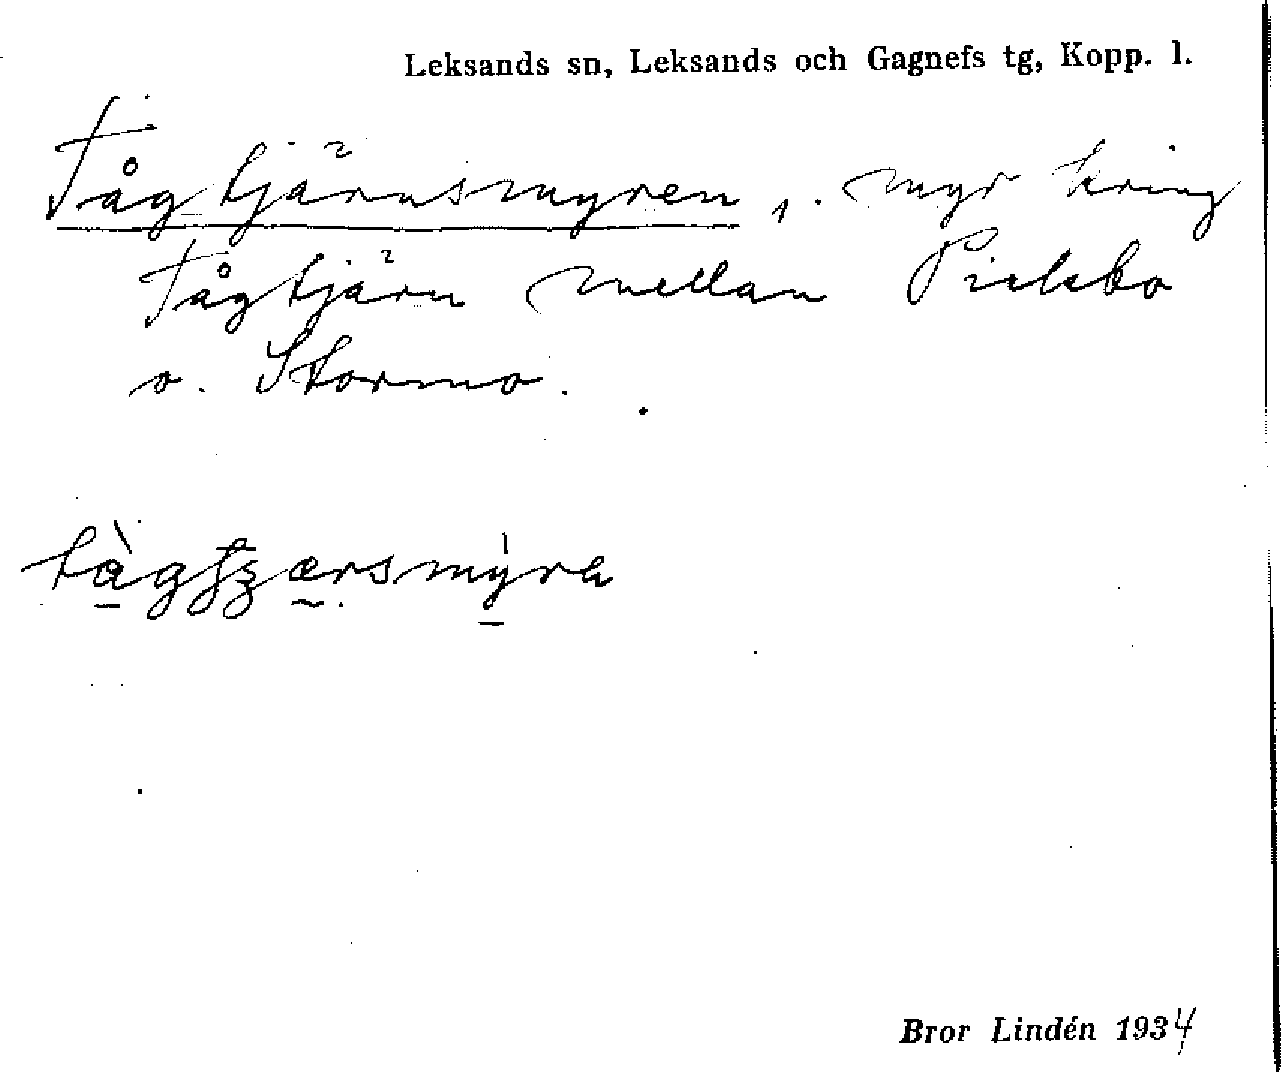 Leksands sn, Leksands och Gagnefs tg, Kopp. l.
Tågtjärnsmyren, myr kring
Tågtjärn mellan
o. Stormo.
Bror Lindén 1934